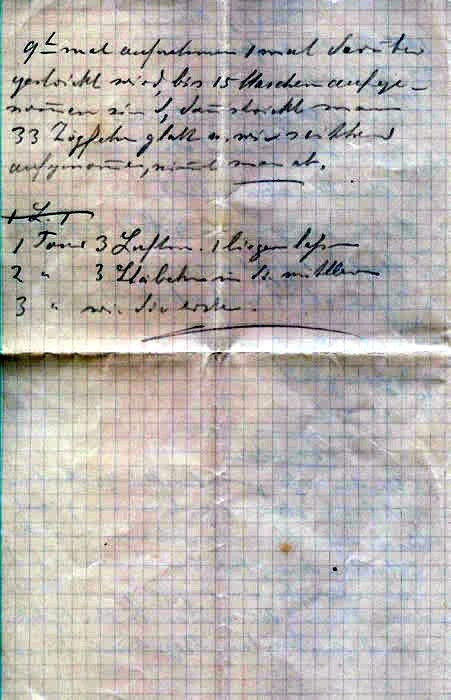 9t mal aufnehmen 1 mal darüber
gestrickt wird, bis 15 Maschen aufge-
nommen sind, dann strickt man
33 Zöpfchen glatt u. wie seither
aufgenommen, nimmt man ab.
1 Tour 3 Luftm. 1 liegen lassen
2 " 3 Stäbchen in d. mittlere
3 " wie die erste.